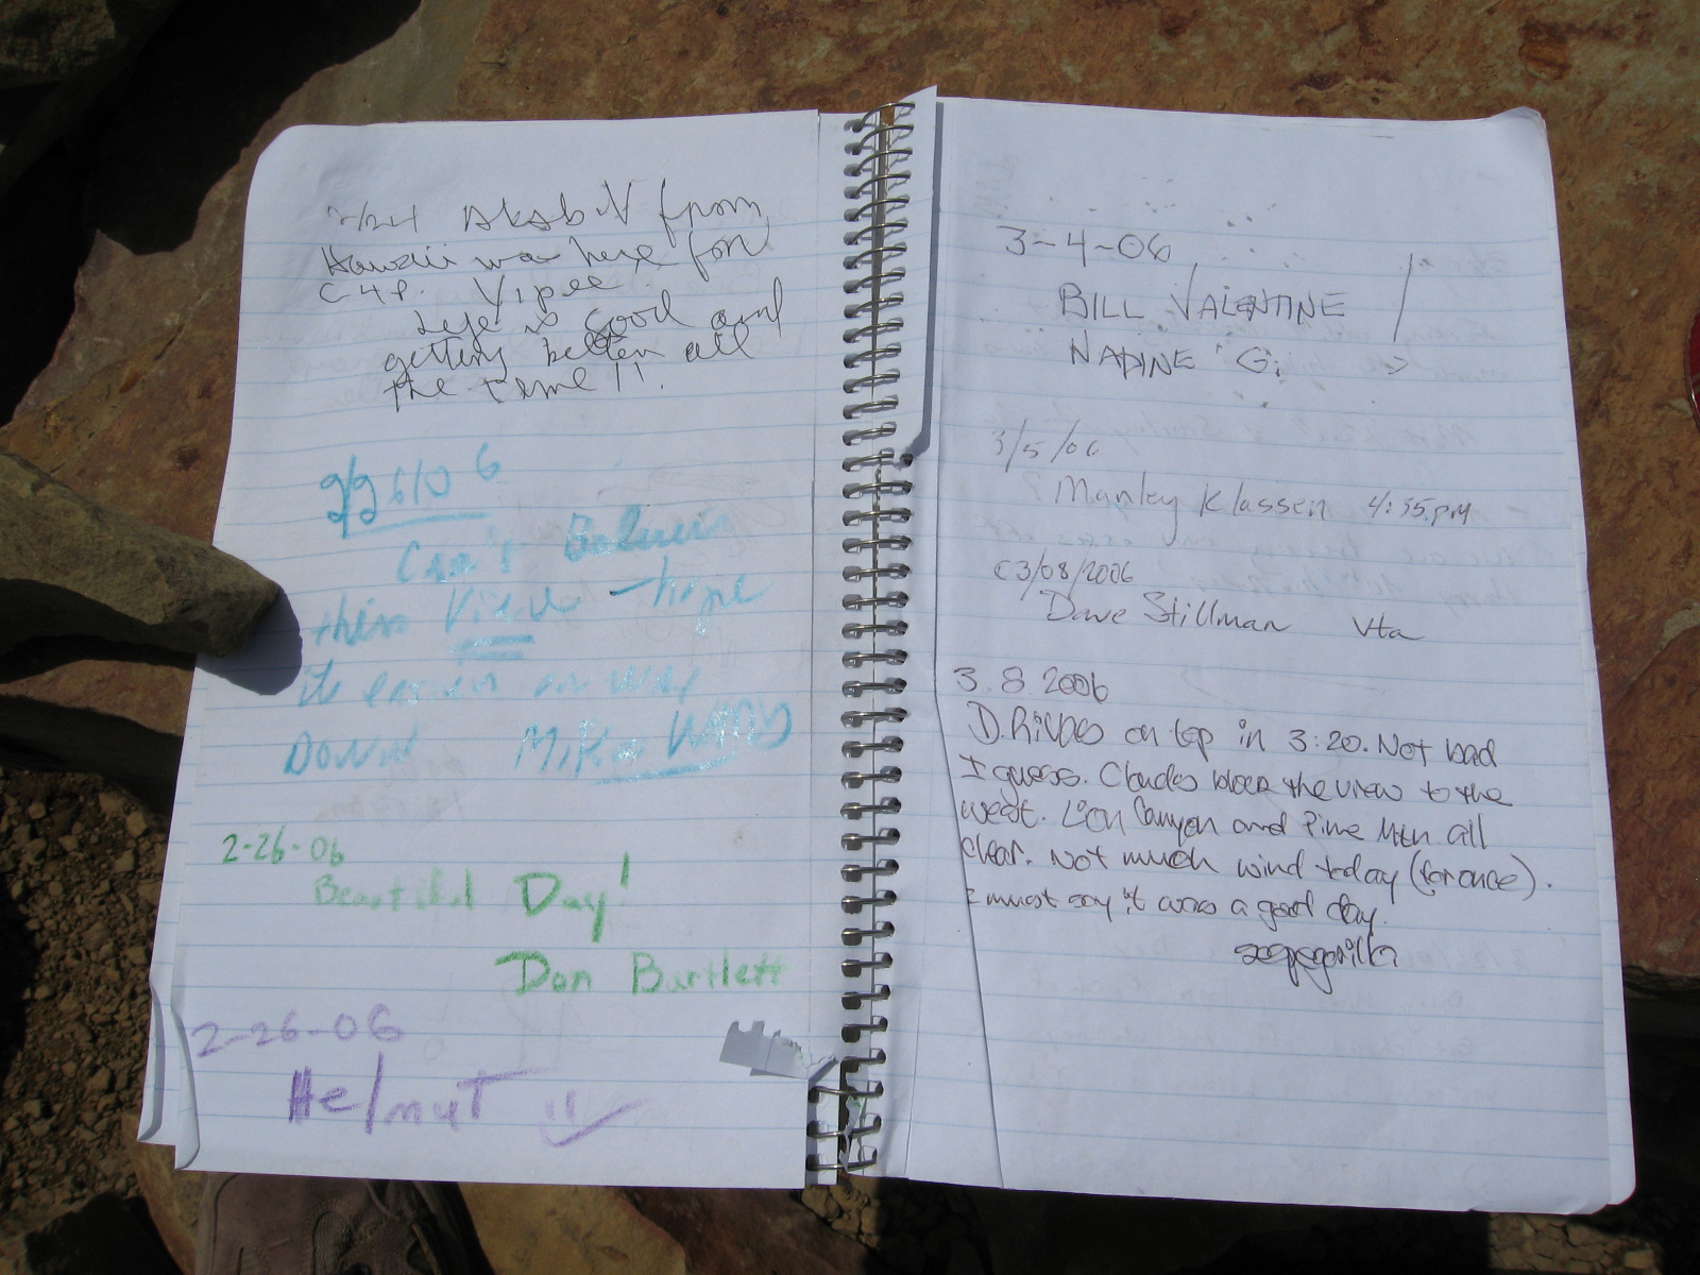 2/24 from
Hawaii was here for
C4P. Yipee.
Life is Good and
getting better all
the time!!.
Can't Believe
this View - hope
its easier on way
Down Mike
2-26-06
Beautiful Day!
Don Bartlett
2-26-06
Helmut
3-4-06
BILL VALENTINE
NADINE G.
3/5/06
Manley Klassen 4:35.PM
03/08/2006
Dave Stillman Vta
3.8.2006
D. on top in 3:20. Not bad
I guess. Clouds block the view to the
west. Lion Canyon and Pine Mtn all
clear. Not much wind today (for once).
I must say it was a good day.